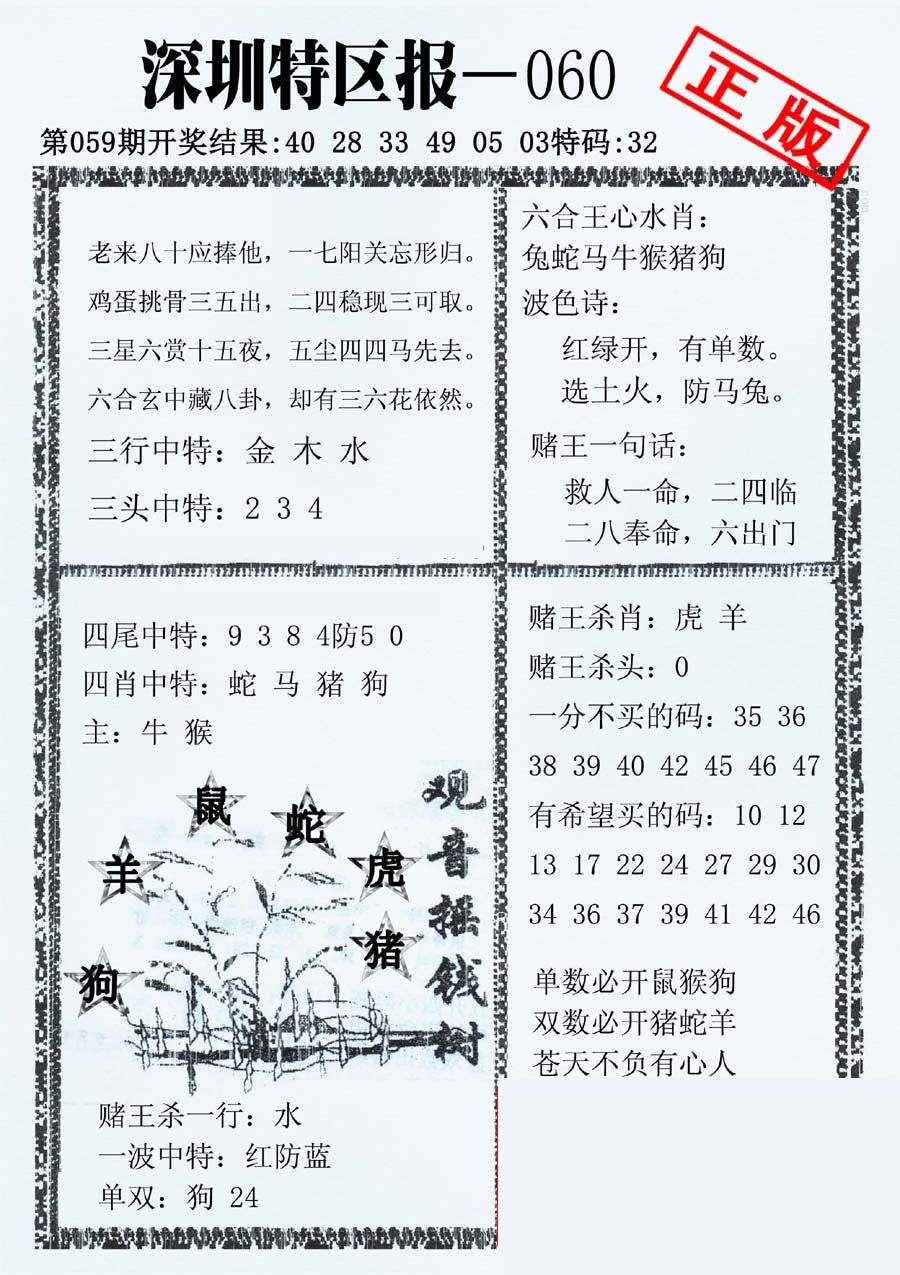 深圳特区报—060
正版
第059期开奖结果:40 28 33 49 05 03特码:32
老来八十应捧他，一七阳关忘形归。
鸡蛋挑骨三五出，二四稳现三可取。
三星六赏十五夜，五尘四四马先去。
六合玄中藏八卦，却有三六花依然。
三行中特：金 木 水
三头中特：2 3 4
六合王心水肖：
兔蛇马牛猴猪狗
波色诗：
红绿开，有单数。
选土火，防马兔。
赌王一句话：
救人一命，二四临
二八奉命，六出门
四尾中特：9 3 8 4防5 0
四肖中特：蛇 马 猪 狗
主：牛 猴
鼠
蛇
羊
虎
猪
狗
观音摇钱树
赌王杀一行：水
一波中特：红防蓝
单双：狗 24
赌王杀肖：虎 羊
赌王杀头：0
一分不买的码：35 36
38 39 40 42 45 46 47
有希望买的码：10 12
13 17 22 24 27 29 30
34 36 37 39 41 42 46
单数必开鼠猴狗
双数必开猪蛇羊
苍天不负有心人